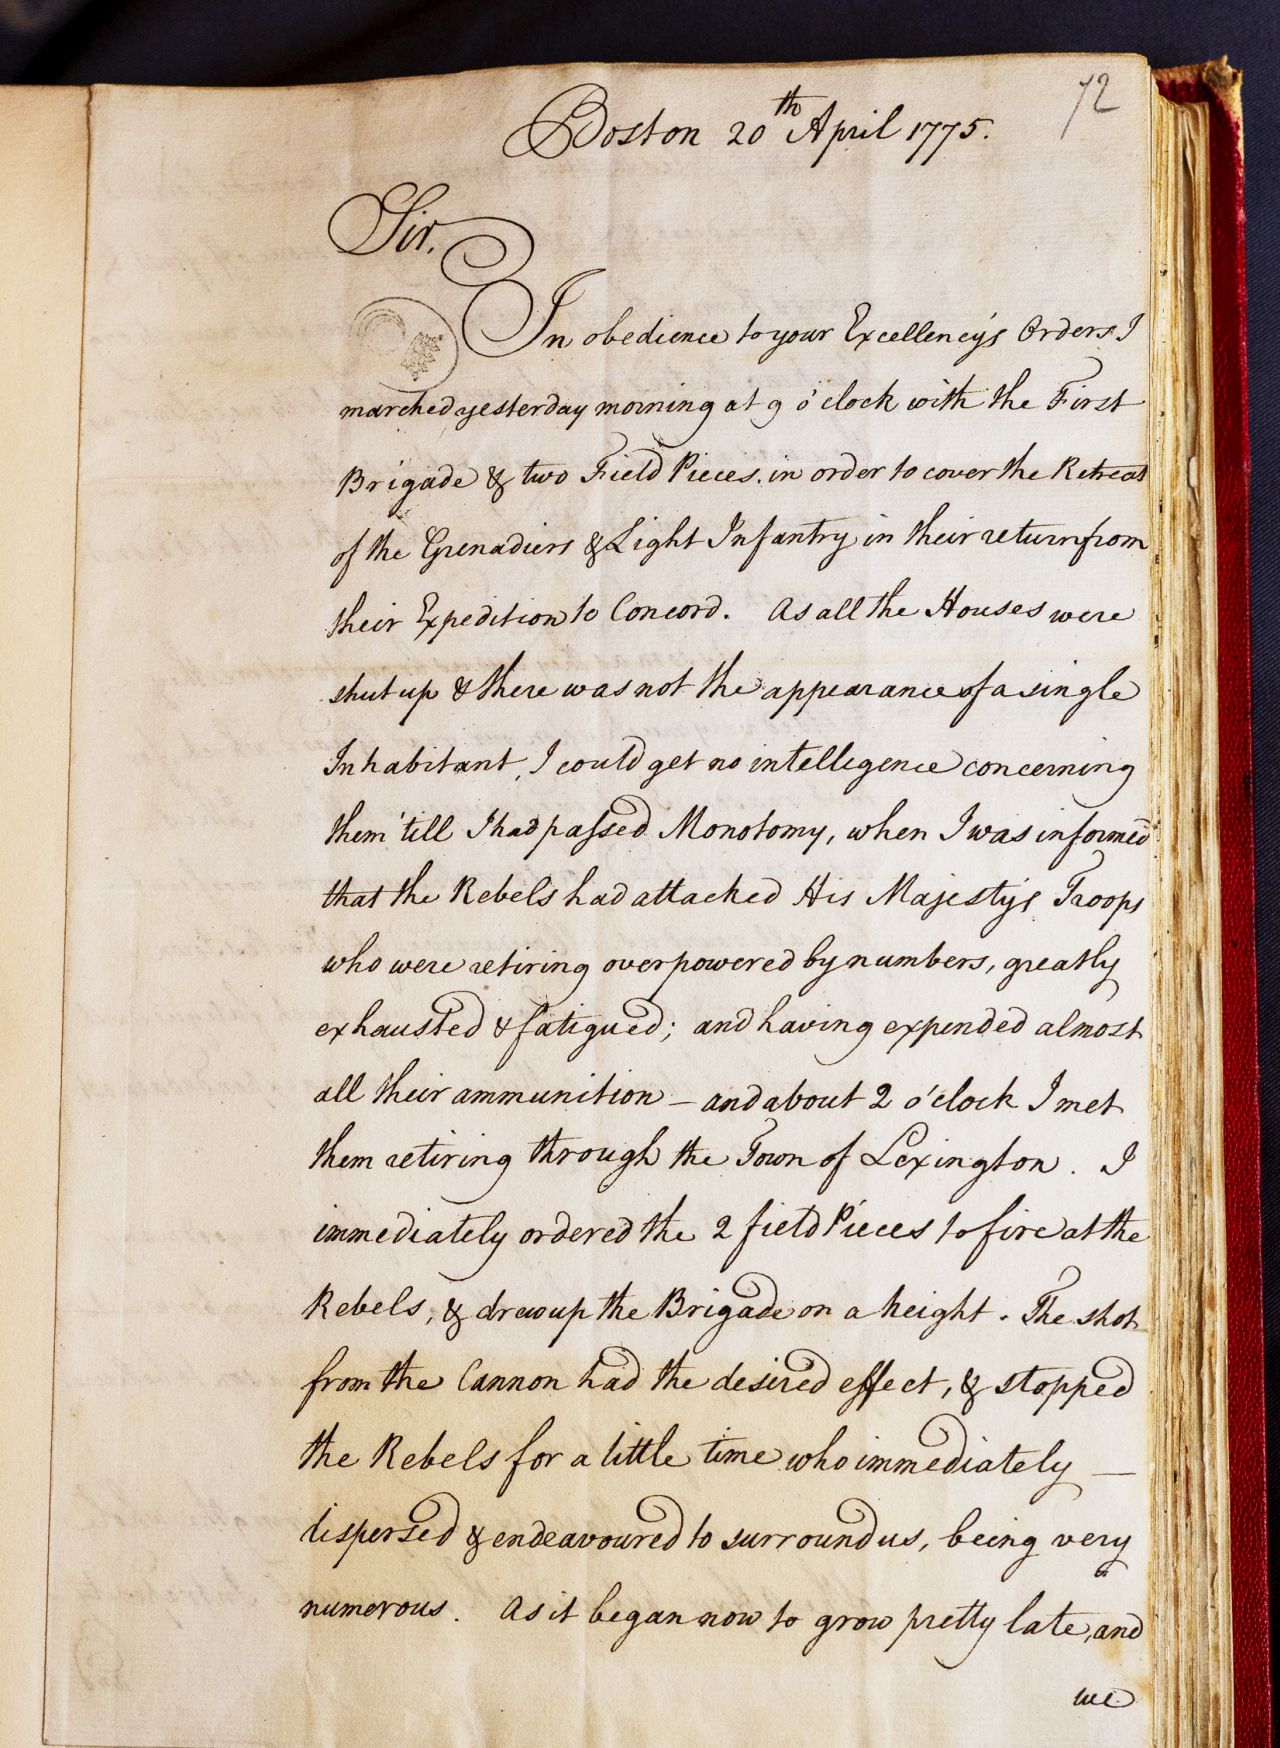 72
Boston 20th April 1775.
Sir,
In obedience to your Excellency's Orders I
marched yesterday morning at 9 o'clock with the First
Brigade & two Field Pieces, in order to cover the Retreat
of the Grenadiers & Light Infantry in their return from
their Expedition to Concord. As all the Houses were
shut up & there was not the appearance of a single
Inhabitant, I could get no intellegence concerning
them 'till I had passed Monotomy, when I was informed
that the Rebels had attacked His Majesty's Troops
who were retiring overpowered by numbers, greatly
exhausted & fatigued; and having expended almost
all their ammunition – and about 2 o'clock I met
them retiring through the Town of Lexington. I
immediately ordered the 2 field Pieces to fire at the
Rebels, & drew up the Brigade on a height. The shot
from the Cannon had the desired effect, & stopped
the Rebels for a little time who immediately –
dispersed & endeavoured to surround us, being very
numerous. As it began now to grow pretty late, and
we